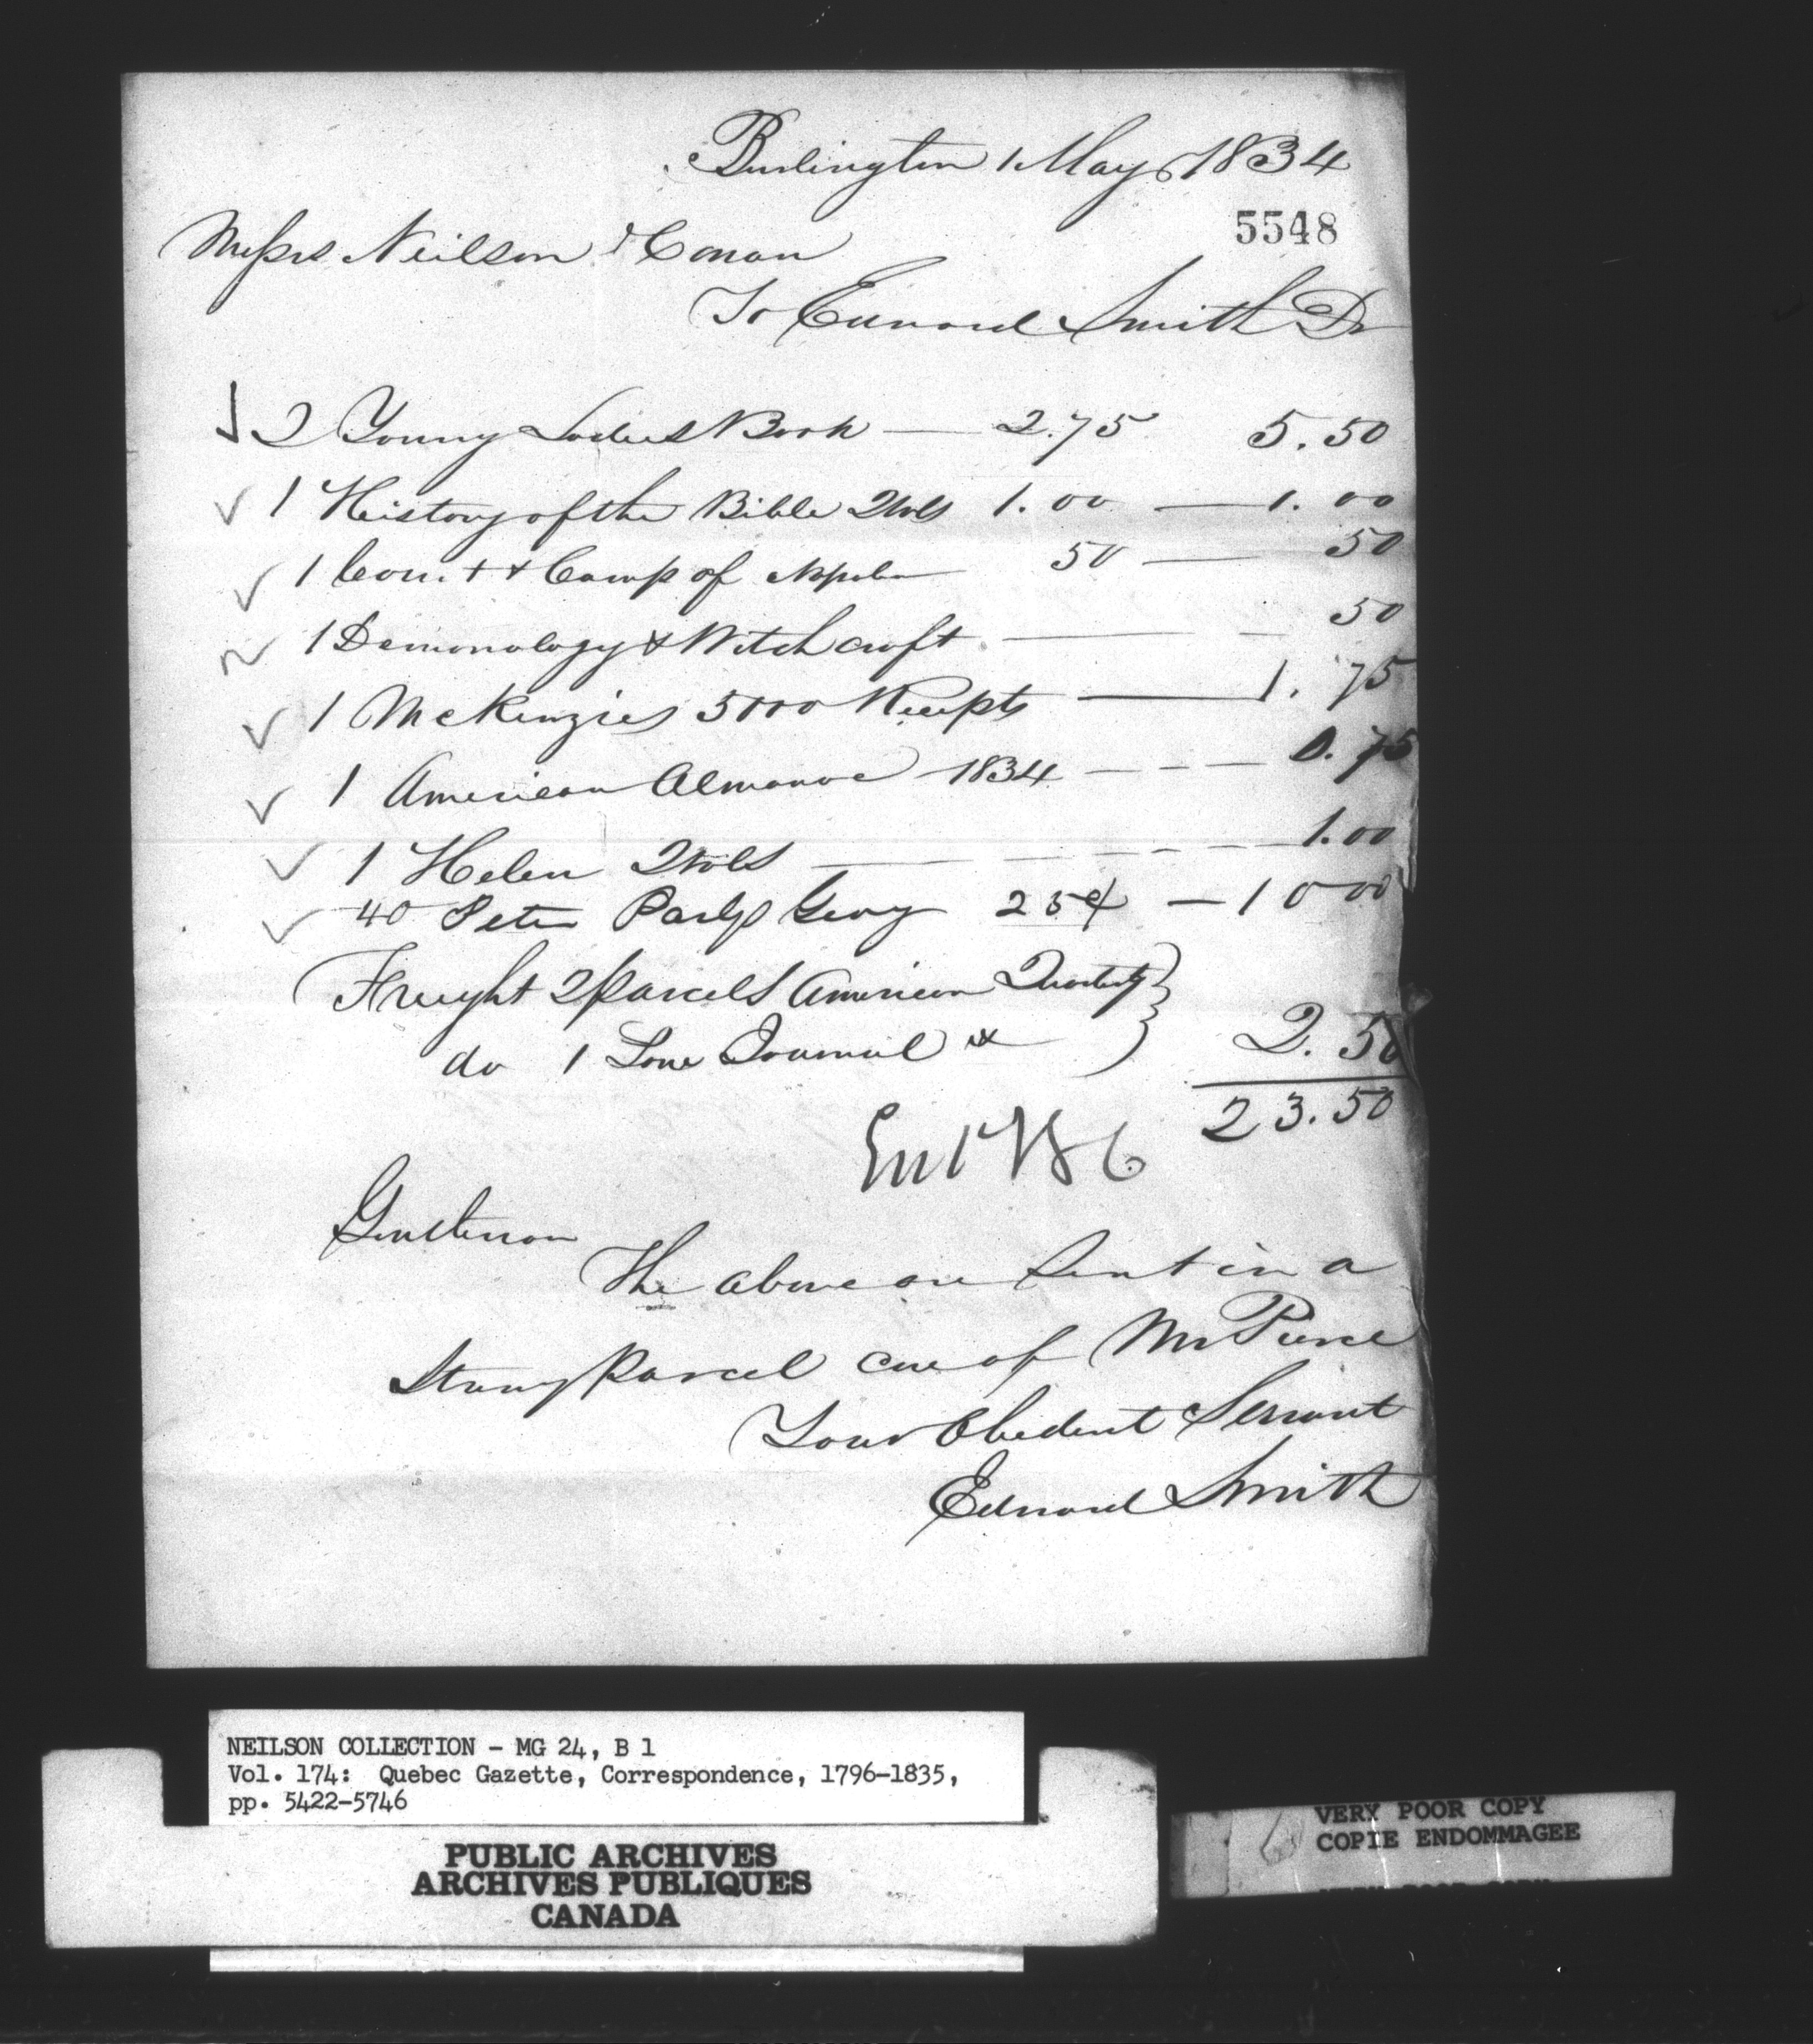 Burlington 1 May 1834
5548
Messrs Neilson & Cowan
To Edward Smith Dr
2 Young Ladies Book — 2.75 5.50
1 History of the Bible 2 vols 1.00 — 1.00
1 Court & Camp of 50 — 50
1 Demonology & Witchcraft — 50
1 McKenzies 5000 Receipts — 1.75
1 American Almanac 1834 - - - 0.75
1 Helen 2 vols — 1.00
40 Peter Parlys Geog 25¢ — 10 00
Freight 2 parcels American Quarterly
do 1 Journal 2.50
23.50
Gentlemen
The above are sent in a
Strong parcel care of Mr Pierce
Your Obedient Servant
Edward Smith
NEILSON COLLECTION - MG 24, B 1
Vol. 174: Quebec Gazette, Correspondence, 1796-1835,
pp. 5422-5746
PUBLIC ARCHIVES
ARCHIVES PUBLIQUES
CANADA
6
VERY POOR COPY
COPIE ENDOMMAGEE